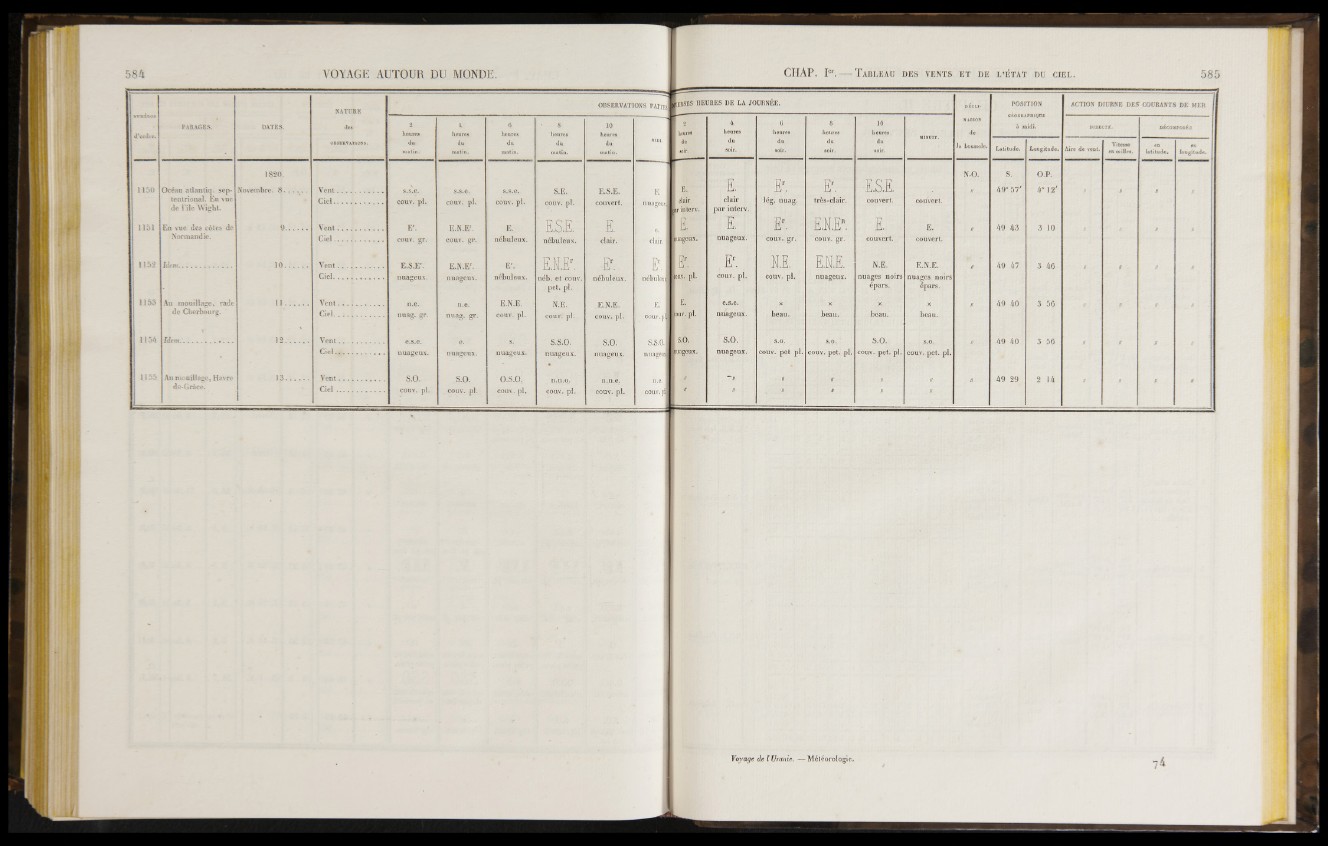 584 VOYAGE AUTOUR DU MONDE.
NUMÉROS d'ordre. PARAGES. DATES. NATURE des OBSERVATIONS. OBSERVATIONS FAITES
2 heures du matin. 4 heures du matin. 6 heures du matin. 8 heures du matin. 10 heures du matin. MIDI.
1820.
1150 Océan atlantiq. sep- Novembre. 8 Vent s.s.e. s.s.e. s.s.e. S.E. E.S.E. E
tentrional. En vue Ciel couv. pl. couv. pl. couv. pl. couv. pl. couvert. nuageux
de l'île Wight.
1151 En vue des côtes de 9 Vent Er. E.N.Er. E. E.S.E. E. e.
Normandie. Ciel couv. gr. couv. gr. nébuleux. nébuleux. clair. clair
1152 Idem 10 Vent E.S.Er. E.N.Er. Er. E.N.Er Er Er
Ciel nuageux. nuageux. nébuleux. néb. et couv. nébuleux. nébuleux
pet. pl.
1153 Au mouillage, rade 11 Vent n.e. n.e. E.N.E. N.E. E.N.E. E
de Cherbourg. Ciel nuag. gr. nuag. gr. couv. pl. couv. pl. couv. pl. couv. pl.
1154 Idem 12 Vent e.s.e. e. s. S.S.O. S.O. S.S.O.
Ciel nuageux. nuageux. nuageux. nuageux. nuageux. nuageux
1155 Au mouillage, Havre 13 Vent S.O. S.O. O.S.O. n.n.e. n.n.e. n.e.
de-Grâce. Ciel couv. pl. couv. pl. couv. pl. couv. pl. couv. pl. couv. pl.
CHAP. Ier. — TABLEAU DES VENTS ET DE L'ÉTAT DU CIEL. 585
HEURES DE LA JOURNÉE. DÉCLINAISON de la boussole. POSITION GÉOGRAPHIQUE à midi. ACTION DIURNE DES COURANTS DE MER
2 heures du soir. 4 heures du soir. 6 heures du soir. 8 heures du soir. 10 heures du soir. MINUIT. Latitude. Longitude. DIRECTE. DÉCOMPOSÉE
Aire de vent. Vitesse en milles. en latitude. en longitude.
N-O. S. O.P.
E. E. Er. Er. E.S.E. " 49° 57' 3° 12' " " " "
clair clair lég. nuag. très-clair. couvert. couvert.
par interv. par interv.
E. E. Er E.N.Er. E. E. " 49 43 3 10 " " " "
nuageux. nuageux. couv. gr. couv. gr. couvert. couvert.
Er. Er. N.E. E.N.E. N.E. E.N.E. " 49 47 3 46 " " " "
couv. pl. couv. pl. couv. pl. nuageux. nuages noirs nuages noirs
épars. épars.
E. e.s.e. " 49 40 3 56 " " " "
couv. pl. nuageux. beau. beau. beau. beau.
S.O. S.O. s.o. s.o. S.O. s.o. " 49 40 3 56 " " " "
nuageux. nuageux. couv. pet pl. couv. pet. pl. couv. pet. pl. couv. pet. pl.
" " " " " " " 49 29 2 14 " " " "
" " " " " "
Voyage de l'Uranie. — Météorologie. 74